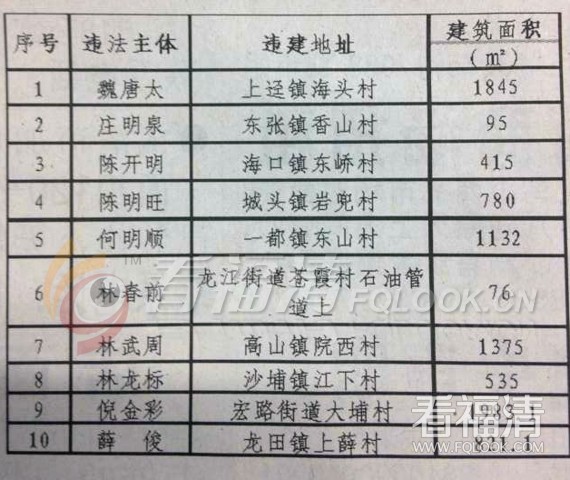 序号 违法主体 违建地址 建筑面积
(㎡)
1 魏唐太 上迳镇海头村 1845
2 庄明泉 东张镇香山村 95
3 陈开明 海口镇东峤村 415
4 陈明旺 城头镇岩兜村 780
5 何明顺 一都镇东山村 1132
6 林春前 龙江街道苍霞村石油管
道上 76
7 林武周 高山镇院西村 1375
8 林龙标 沙埔镇江下村 535
9 倪金彩 宏路街道大埔村
10 薛俊 龙田镇上薛村
TM
看福清 FQLOOK.CN
看福清
WWW.FQLOOK.CN